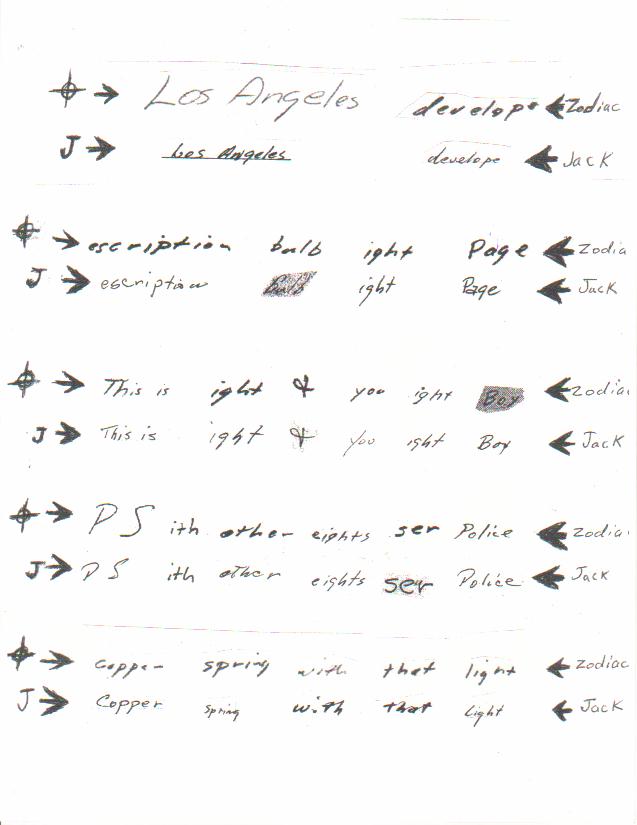 Los Angeles develope Zodiac
J Los Angeles develope Jack
escription bulb ight Page Zodia
J escription Bulb ight Page Jack
This is ight & you ight Boy Zodia
J This is ight & you ight Boy Jack
PS ith other eights ser Police Zodia
J PS ith other eights ser Police Jack
copper spring with that light Zodiac
J Copper spring with that Light Jack